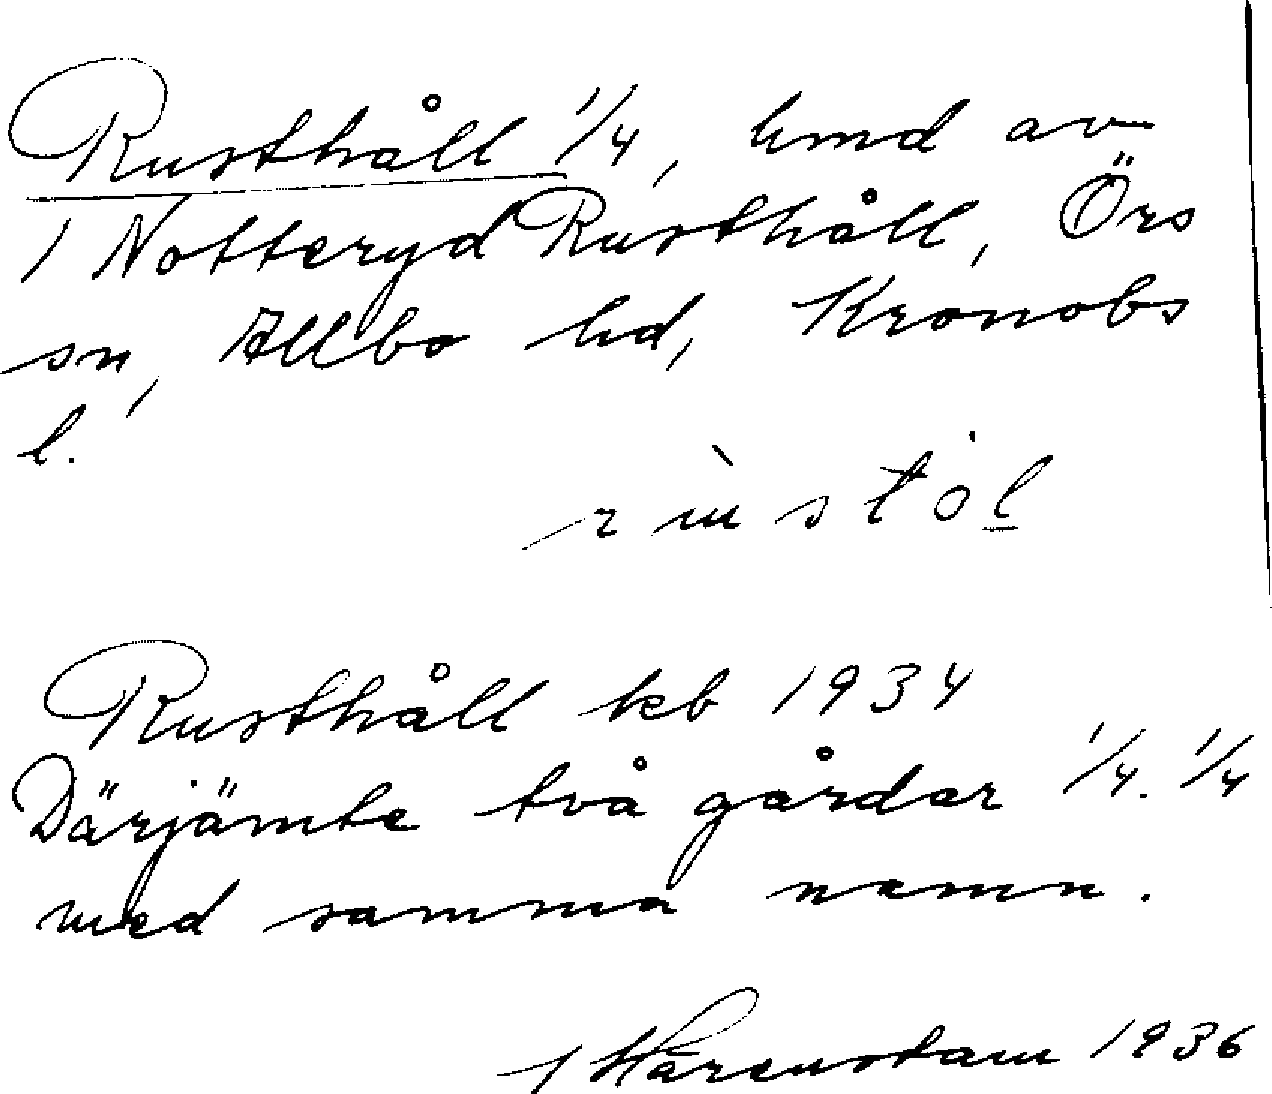 Rusthåll 1/4, hmd av
1 Notteryd Rusthåll, Örs
sn, Allbo hd, Kronobs
l.
Rusthåll kb 1934
Därjämte två gårdar 1/4. 1/4
med samma namn.
Härenstam 1936